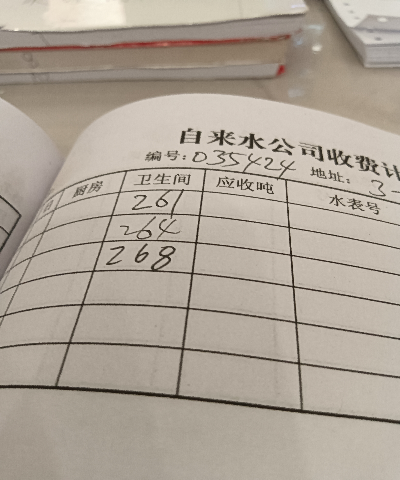 自来水公司收费计
编号:035424 地址: 3-
厨房 卫生间 应收吨 水表号
261
264
268